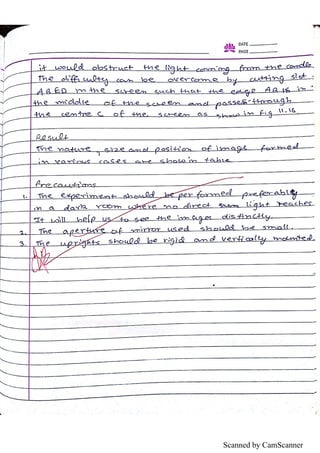 DATE
PAGE
it would obstruct the light coming from the candle.
The difficulty can be overcome by cutting slot
ABED in the screen such that the edge AB is in
the middle of the screen and passes through
the centre C of the screen as show in Fig 11.16
Result
The nature, size and position of image formed
in various cases are show in table
Precautions
1. The experiment should be performed preferably
in a dark room where no direct sun light reaches.
It will help us to see the images distinctly.
2. The aperture of mirror used should be small.
3. The uprights should be rigid and vertically mounted.
Scanned by CamScanner